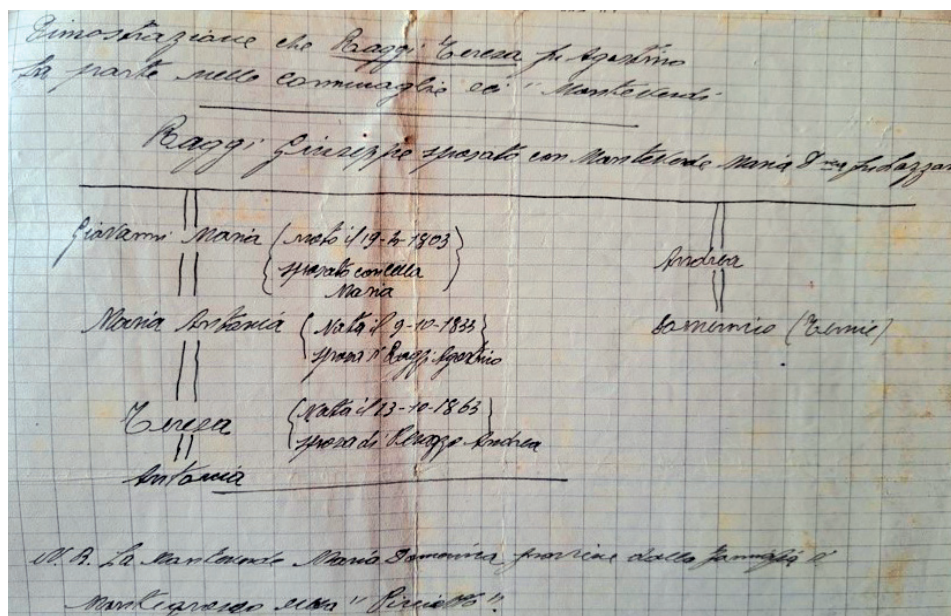 Dimostrazione che Raggi Teresa fu Agostino
fa parte nelle comunaglie ei "Monteverdi
Raggi Giuseppe sposato con Monteverde Maria D.nca fu Lazzar
Giovanni Maria (nato il 19-2-1803)
sposato con Cella
Maria
Andrea
Maria Antonia (Nata il 9-10-1833)
sposa di Raggi Agostino
Domenico
Teresa (Nata il 13-10-1863)
sposa di Andrea
Antonia
N.B. La Monteverde Maria Domenica proviene dalla famiglia di